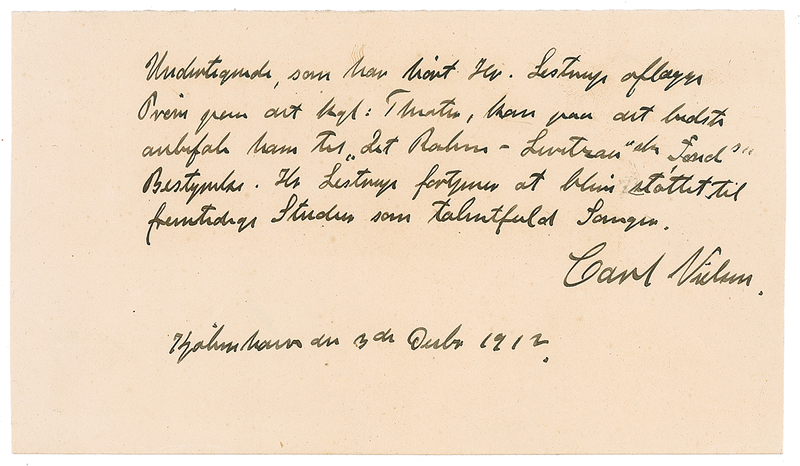 Undertegnede, som har hört Hr. Lestrup aflægge
Prøve paa det kgl: Theater, kan paa det bedste
anbefale ham til "Det Raben - Levetzau"ske Fond"s"
Bestyrelse. Hr Lestrup fortjener at blive støttet til
fremtidige Studier som talentfuld Sanger.
Carl Nielsen.
Kjöbenhavn den 3de 1912.